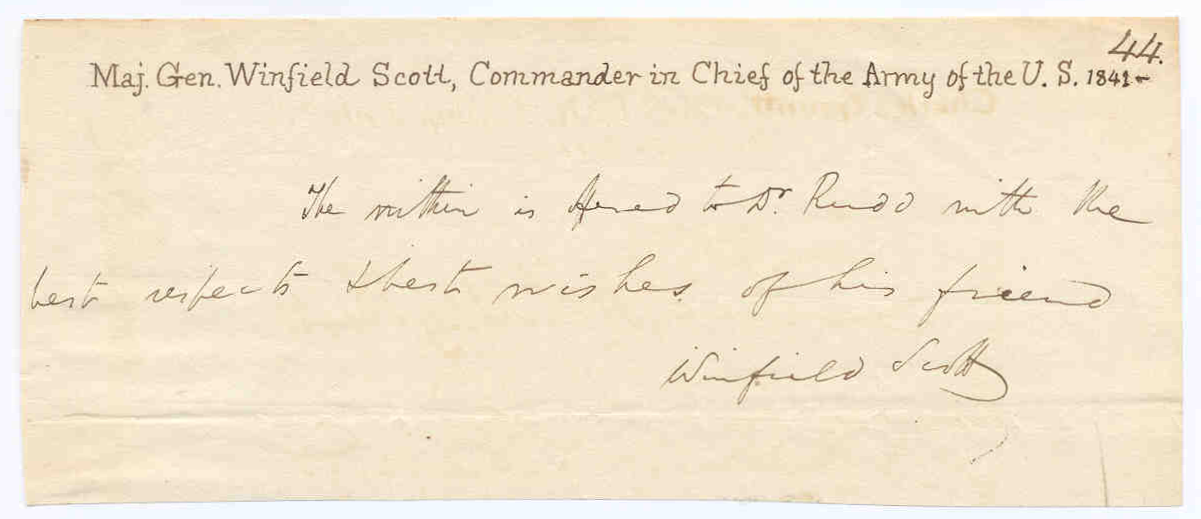 44.
Maj. Gen. Winfield Scott, Commander in Chief of the Army of the U. S. 1841-
The within is offered to Dr. Rudd with the
best respects & best wishes of his friend
Winfield Scott